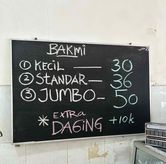 BAKMI
① KECIL — 30
② STANDAR — 36
③ JUMBO — 50
* EXTRA
DAGING +10K